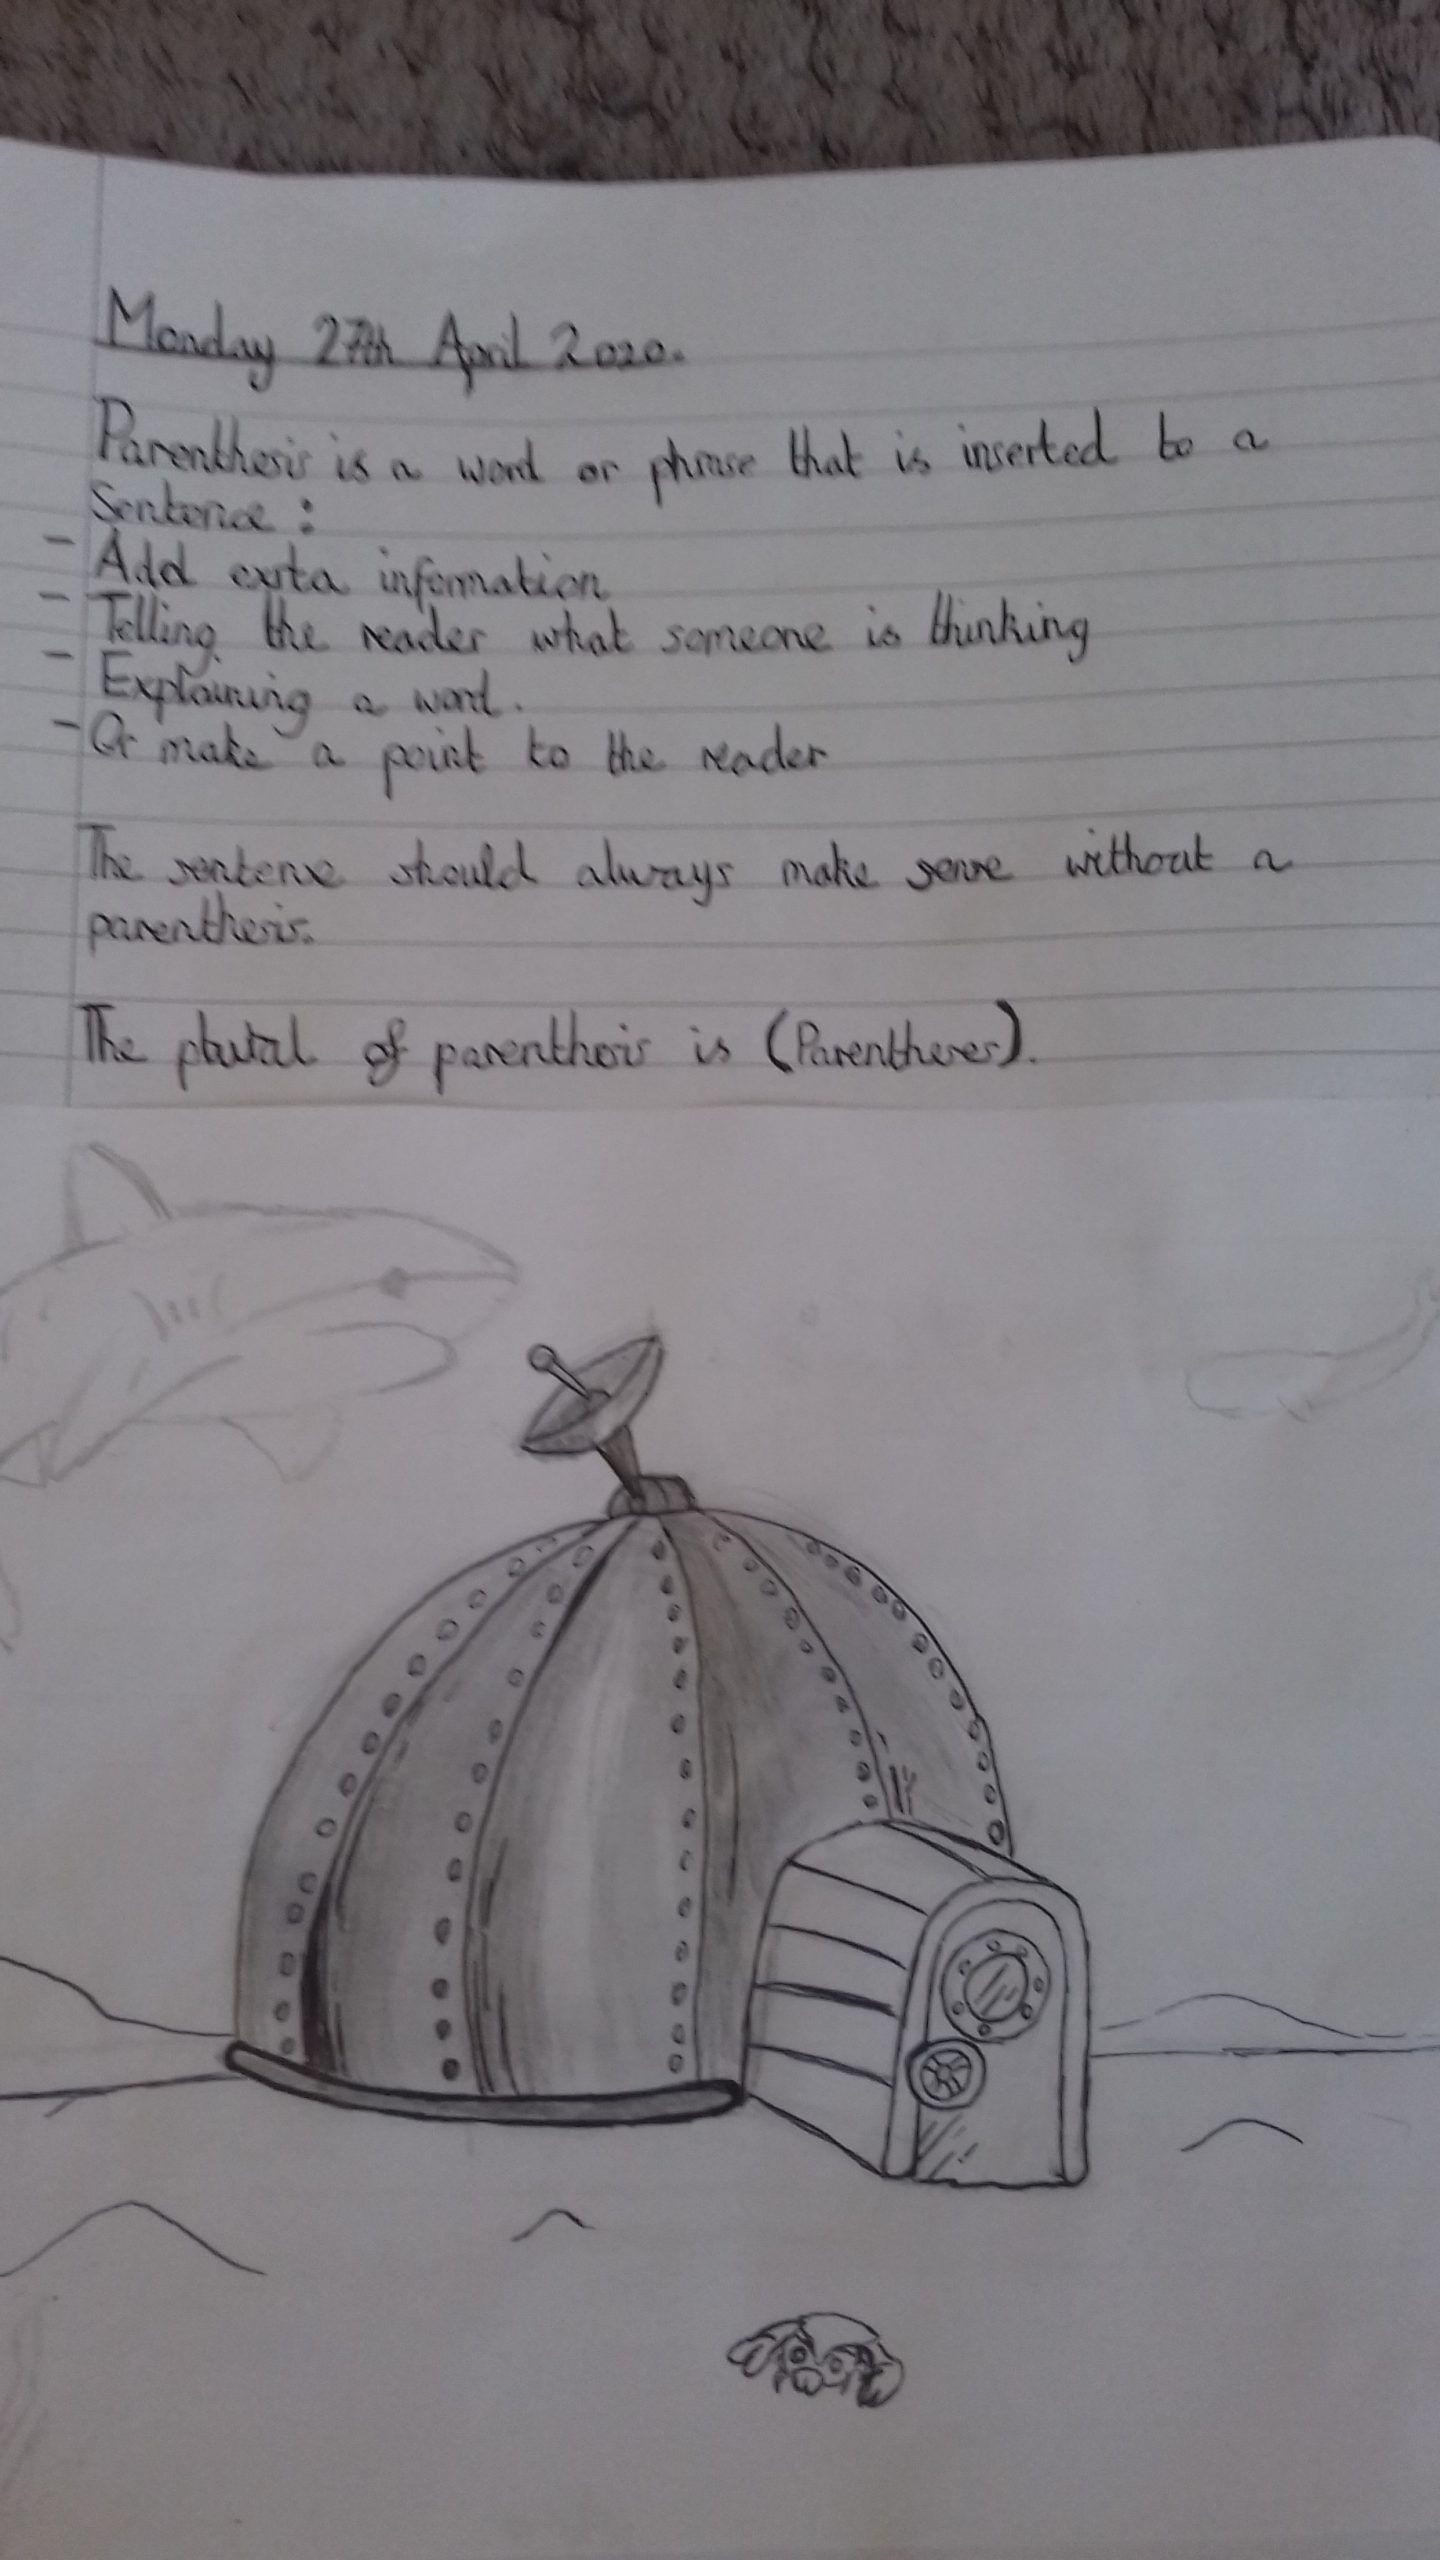 Monday 27th April 2020.
Parenthesis is a word or phrase that is inserted to a
Sentence :
- Add exrta information
- Telling the reader what someone is thinking
- Explaining a word.
- Or make a point to the reader
The sentense should always make sense without a
parenthesis.
The plural of parenthesis is (Parentheses).